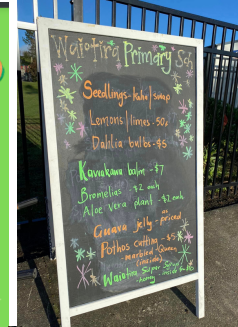 Waiotira Primary Sch
Seedlings - kale/
Lemons/limes - 50¢
Dahlia bulbs - $5
Kawakawa balm - $7
Bromelias - $2 each
Aloe vera plant - $2 each
Guava jelly - as priced
Pothos cutting - $5
- marbled Queen
(inside)
Waiotira Super
- honey - inside